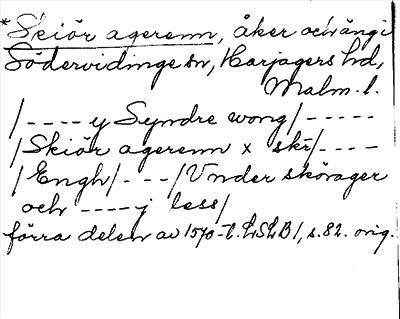 *Skiör agerenn, åker och äng i
Södervidinge sn, Harjagers hd,
Malm. l.
/---- y Syndre wong/-----
/Skiör agerenn x skr/----
/Engh/---/Vnder skörager
och ----j less/
förra delen av 1570-t. LSLB1, s. 82. orig.